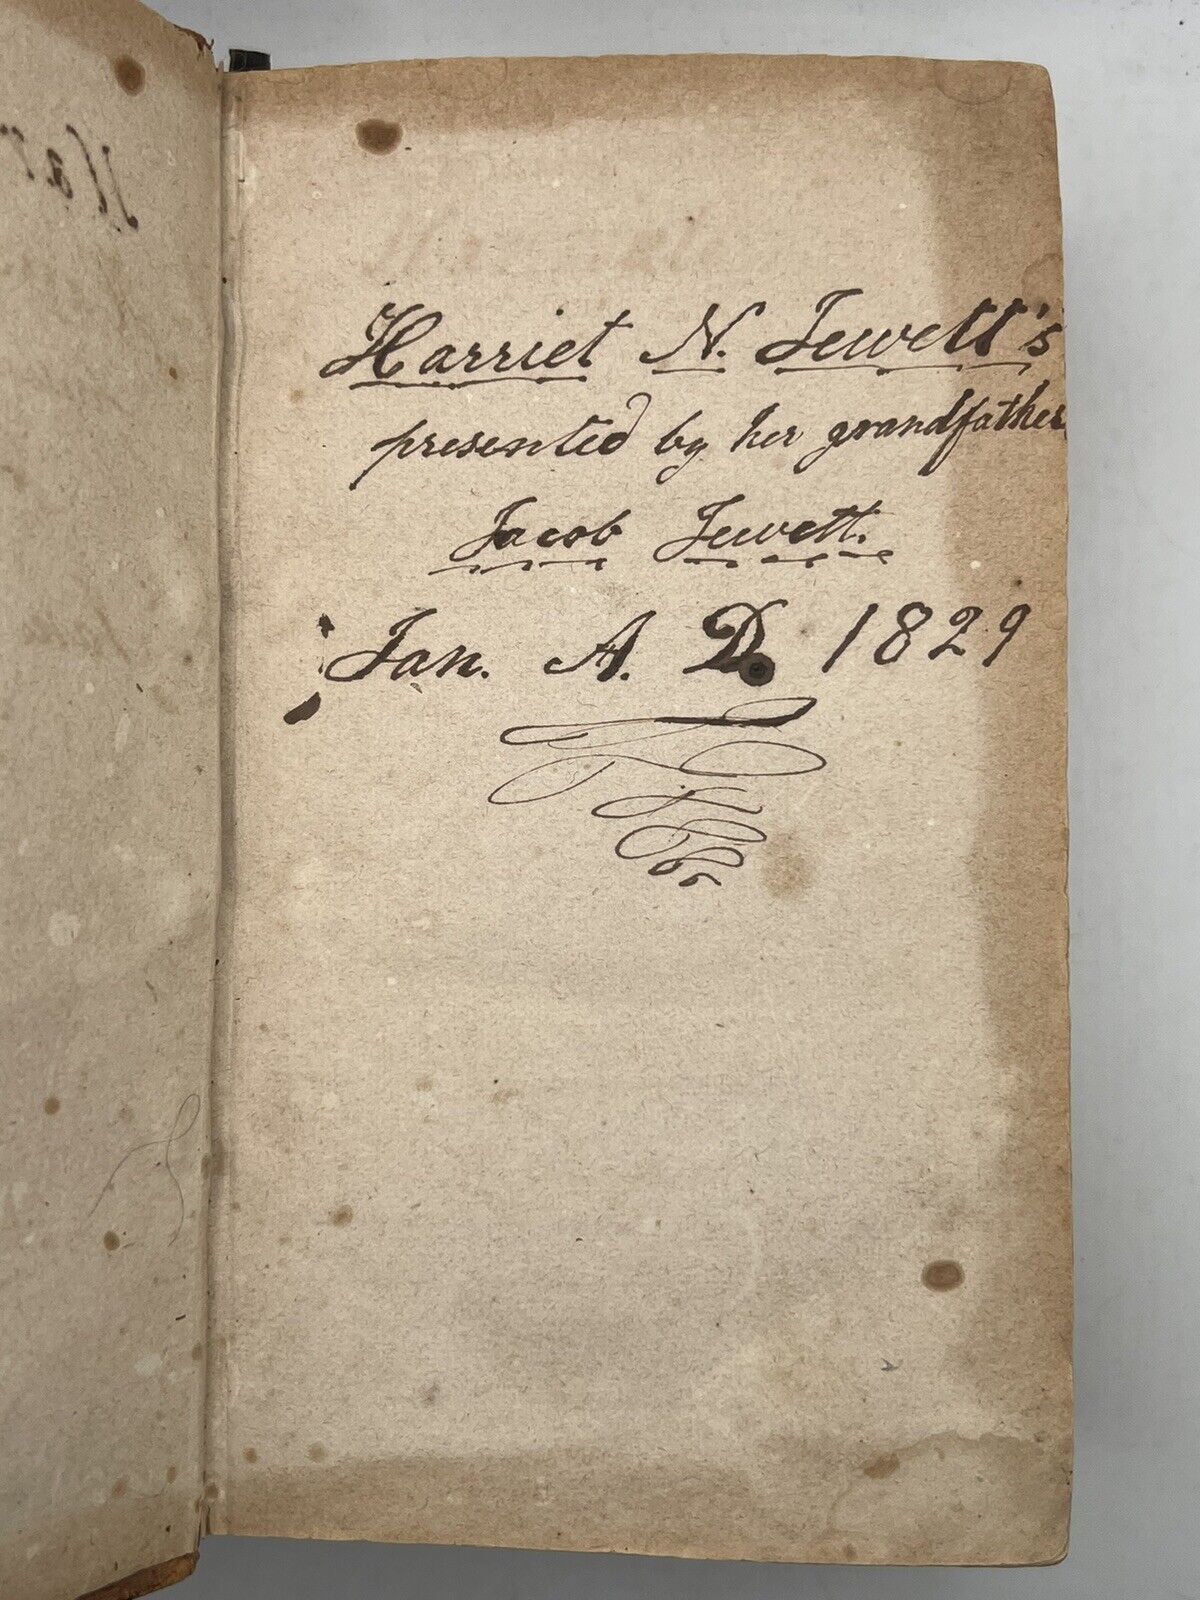 Har
Harriet N. Jewett's
presented by her grandfather
Jacob Jewett.
Jan. A. D. 1829